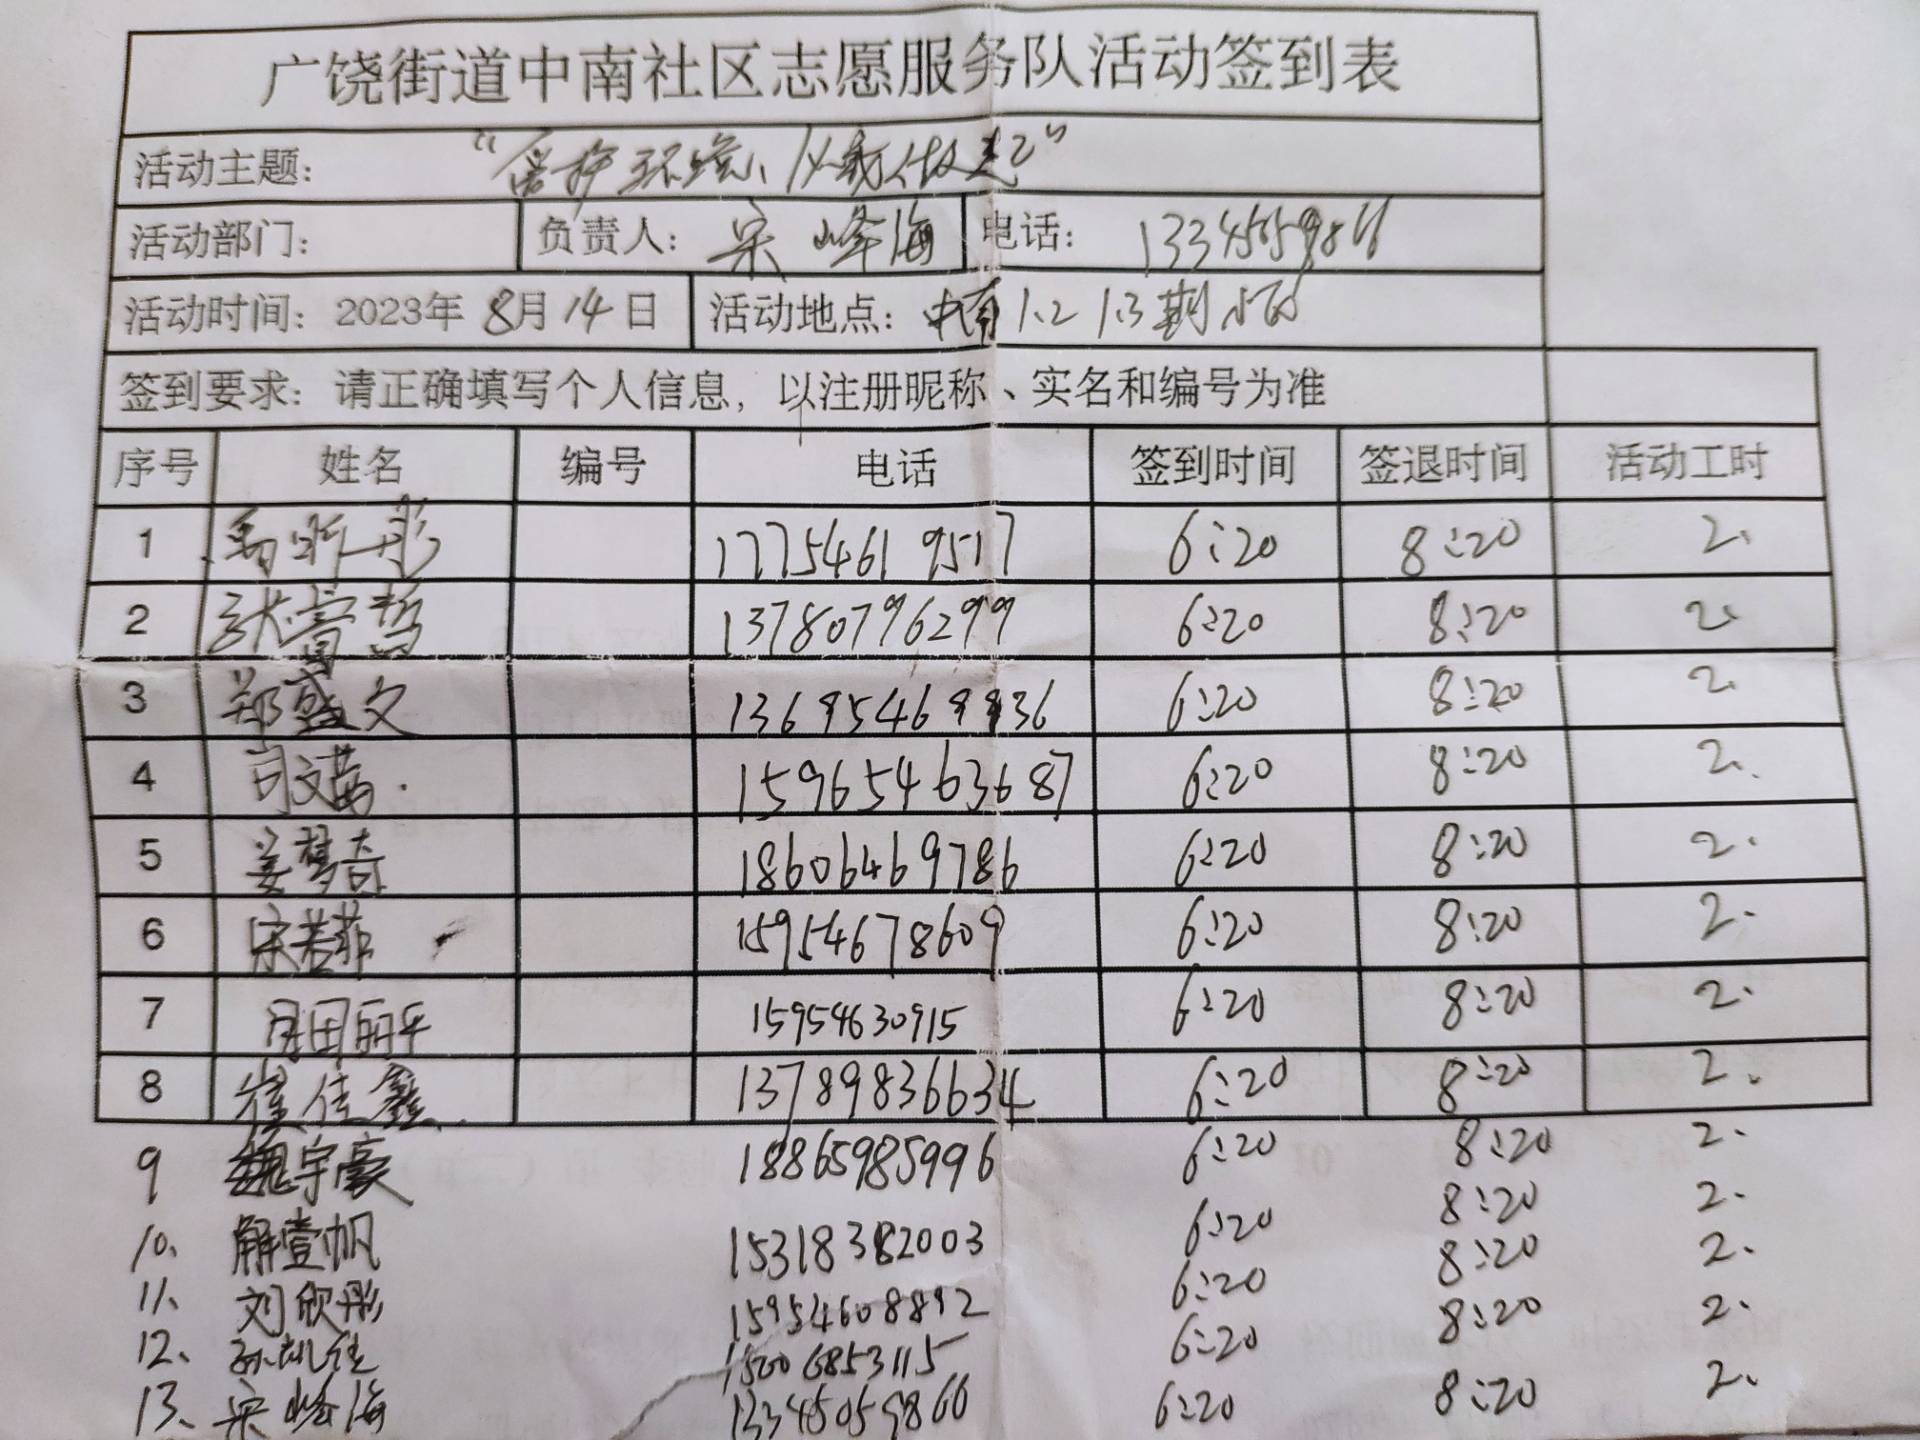 广饶街道中南社区志愿服务队活动签到表
活动主题： “爱护环境、从我做起”
活动部门： 负责人： 宋峰海 电话：
活动时间：2023年 8月 14 日 活动地点：中南1.2 1.3期
签到要求：请正确填写个人信息，以注册昵称、实名和编号为准
序号 姓名 编号 电话 签到时间 签退时间 活动工时
1 17754619517 6:20 8:20 2.
2 13780796299 6:20 8:20 2.
3 郑盛文 6:20 8:20 2.
4 15965463687 6:20 8:20 2.
5 姜梦奇 18606469786 6:20 8:20 2.
6 宋若菲 15954678609 6:20 8:20 2.
7 15954630915 6:20 8:20 2.
8 崔佳鑫 13789836634 6:20 8:20 2.
9 魏宇豪 18865985996 6:20 8:20 2.
10、 解壹帆 15318382003 6:20 8:20 2.
11、 刘欣彤 15954608892 6:20 8:20 2.
12、 15006853115 6:20 8:20 2.
13、 宋峰海 13345059866 6:20 8:20 2.